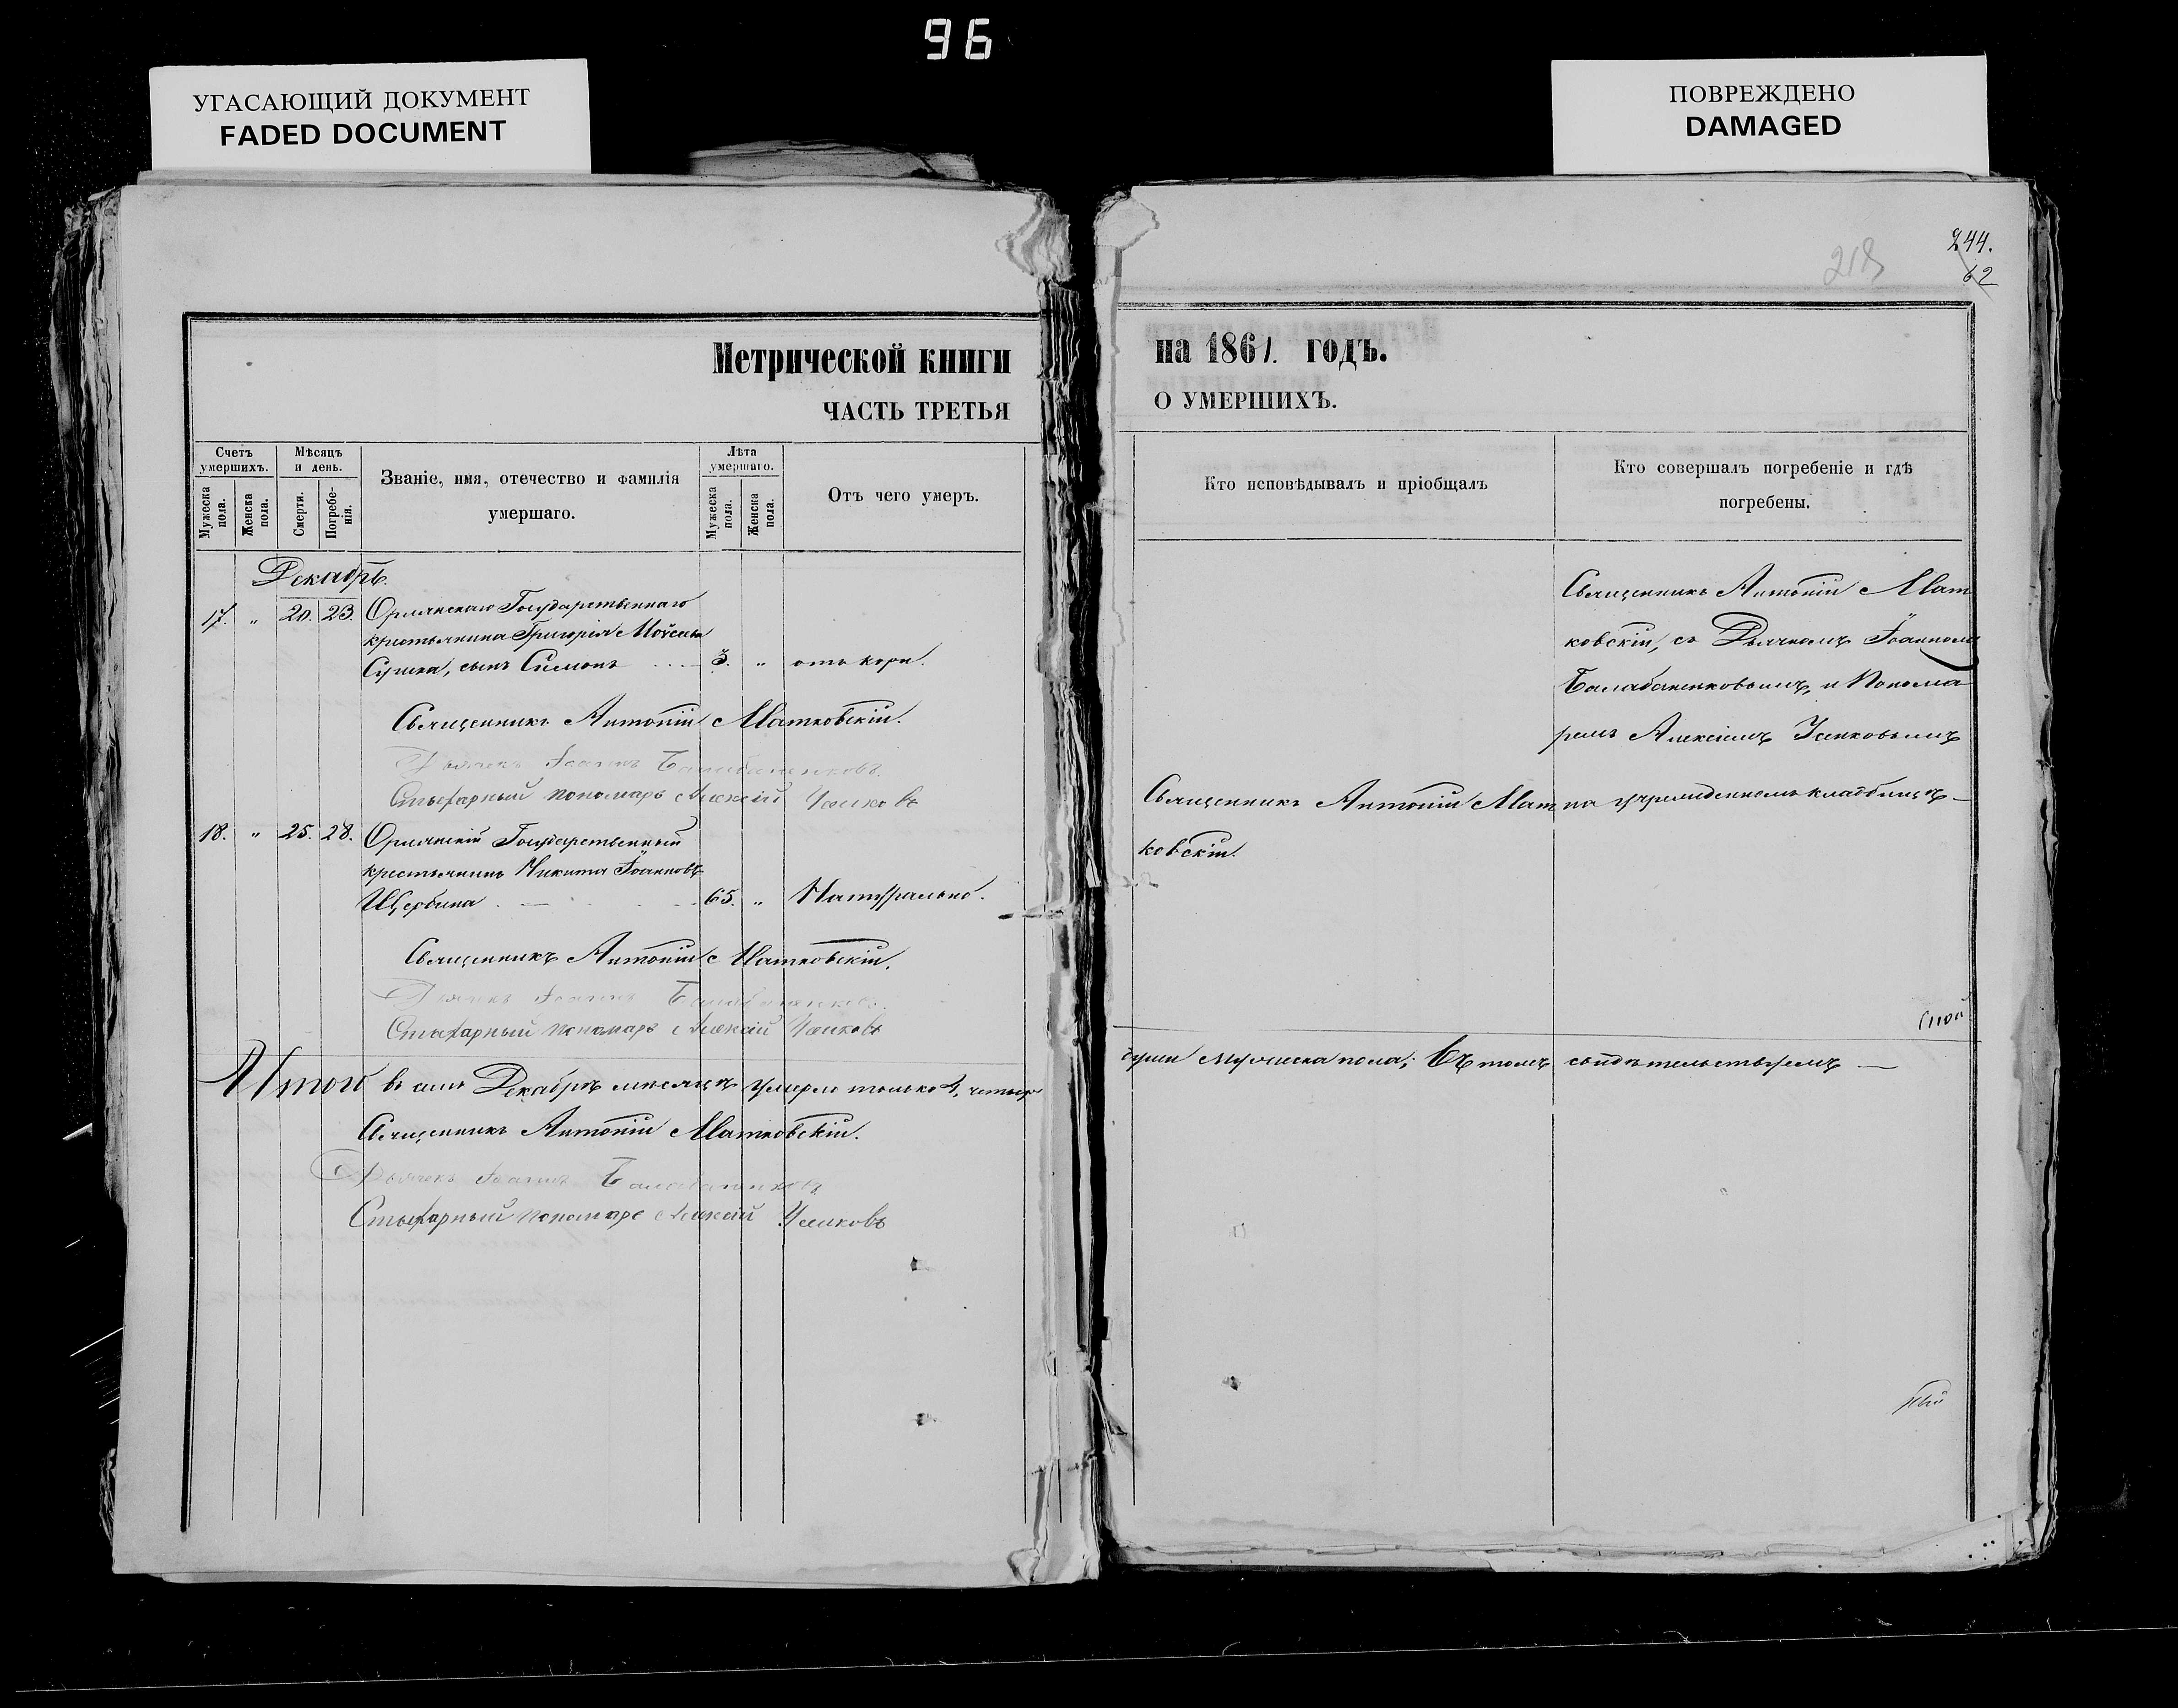 96
УГАСАЮЩИЙ ДОКУМЕНТ
FADED DOCUMENT
ПОВРЕЖДЕНО
DAMAGED
Метрической книги
ЧАСТЬ ТРЕТЬЯ
Счетъ умершихъ.
Мужеска пола.
Женска пола.
Мѣсяцъ и день.
Смерти.
Погребенія.
Званіе, имя, отечество и фамилія
умершаго.
Лѣта умершаго.
Мужеска пола.
Женска пола.
Отъ чего умеръ.
Декабрь.
17. " 20. 23. Орлянскаго Государственнаго
крестьянина Григорія Моѵсеева
сынъ Симонъ 3. " отъ кори.
Священникъ Антоній Матковскій.
Дьячекъ Іоаннъ Балабаненковъ.
Стыхарный пономарь Алексій
18. " 25. 28. Орлянскій Государственный
крестьянинъ Никита Іоанновъ
Щербина 65. " Натурально.
Священникъ Антоній Матковскій.
Дьячекъ Іоаннъ Балабаненковъ.
Стыхарный пономарь Алексій
Итого въ Декабрѣ мѣсяцѣ умерло только 4, четыре
Священникъ Антоній Матковскій.
Дьячекъ Іоаннъ Балабаненковъ
Стыхарный пономарь Алексій
244.
62
218
на 1861. годъ.
О УМЕРШИХЪ.
Кто исповѣдывалъ и пріобщалъ
Кто совершалъ погребеніе и гдѣ
погребены.
Священникъ Антоній Мат
ковскій, съ Дьячкомъ Іоанномъ
Балабаненковымъ, и Понома
ремъ Алексіемъ
на учрежденномъ кладбищѣ
Священникъ Антоній Мат
ковскій.
души мужеска пола; Въ томъ свидѣтельствуемъ